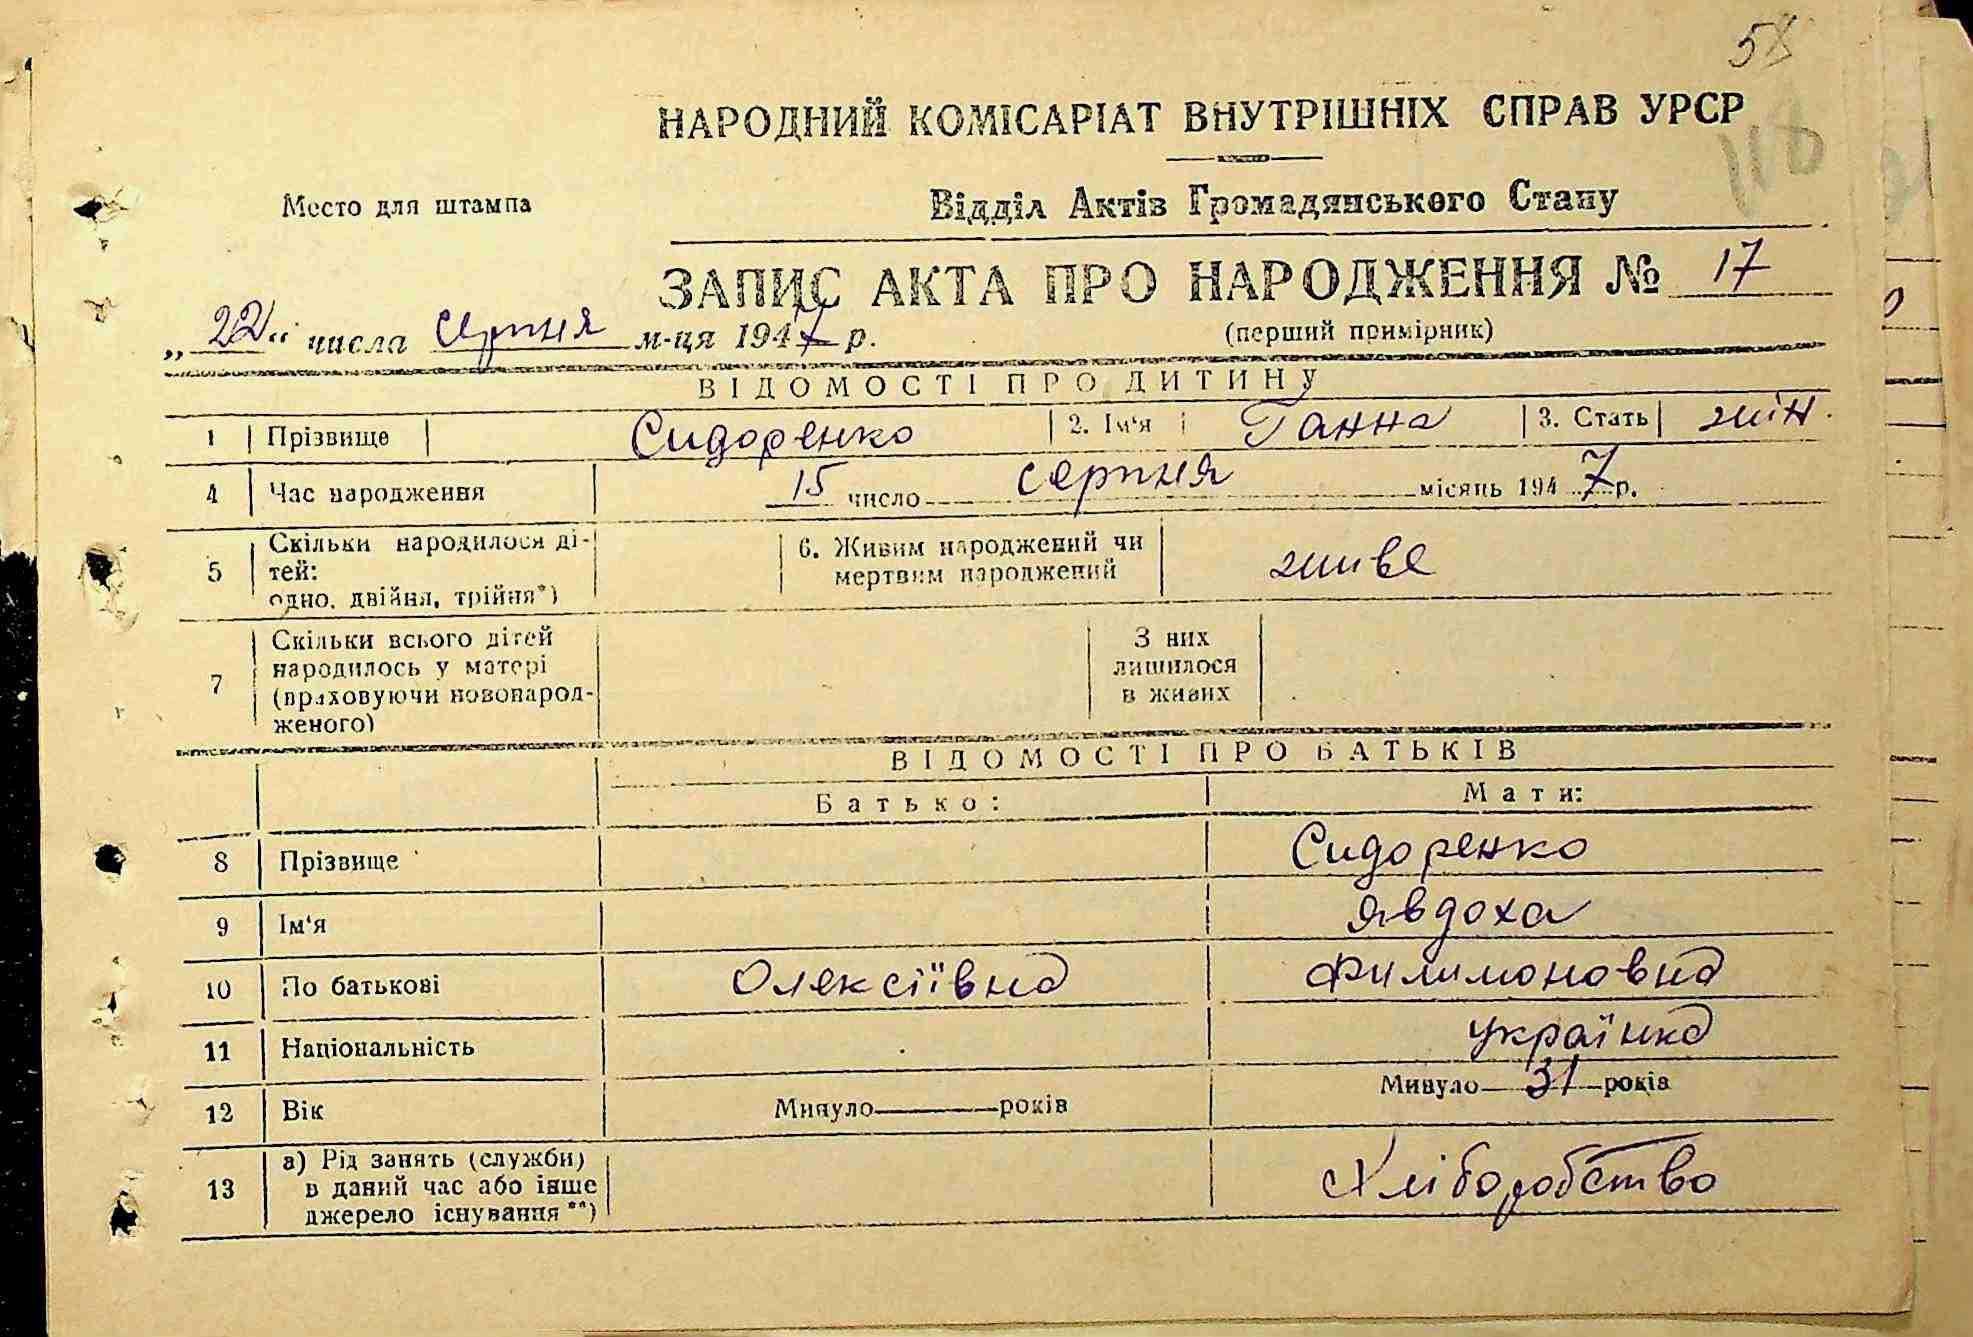 58
НАРОДНИЙ КОМІСАРІАТ ВНУТРІШНІХ СПРАВ УРСР
118
Место для штампа
Відділ Актів Громадянського Стану
ЗАПИС АКТА ПРО НАРОДЖЕННЯ № 17
„22“ числа серпня м-ця 1947 р.
(перший примірник)
ВІДОМОСТІ ПРО ДИТИНУ
1 Прізвище Сидоренко 2. Ім'я Ганна 3. Стать жін.
4 Час народження 15 число серпня місяць 1947 р.
5 Скільки народилося ді-
тей:
одно, двійня, трійня*)
6. Живим народжений чи
мертвим народжений
живе
7 Скільки всього дітей
народилось у матері
(враховуючи новонарод-
женого)
З них
лишилося
в живих
ВІДОМОСТІ ПРО БАТЬКІВ
Батько: Мати:
8 Прізвище Сидоренко
9 Ім'я Явдоха
10 По батькові Олексіївна Филимоновна
11 Національність українка
12 Вік Минуло років Минуло 31 років
13 а) Рід занять (служби)
в даний час або інше
джерело існування**)
Хліборобство